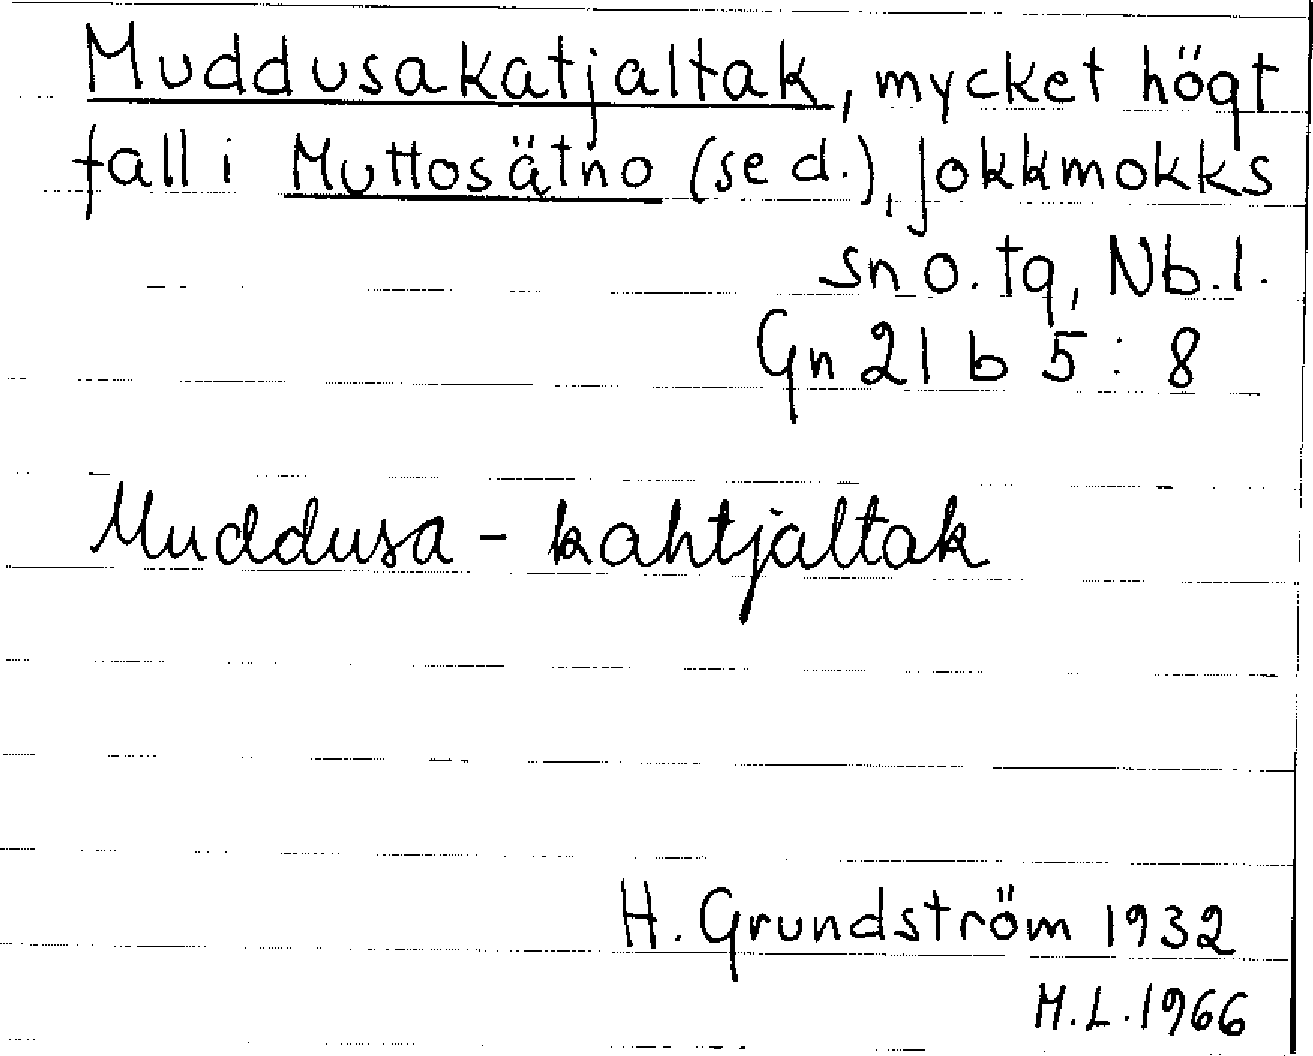 Muddusakatjaltak, mycket högt
fall i Muttosätno (se d.), Jokkmokks
sn o. tg, Nb.l.
Gn 21 b 5 : 8
Muddusa - kahtjaltak
H. Grundström 1932
M.L. 1966